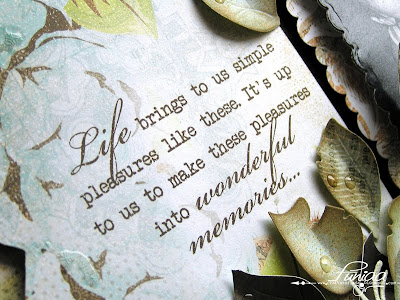 Life brings to us simple
pleasures like these. It's up
to us to make these pleasures
into wonderful
memories...